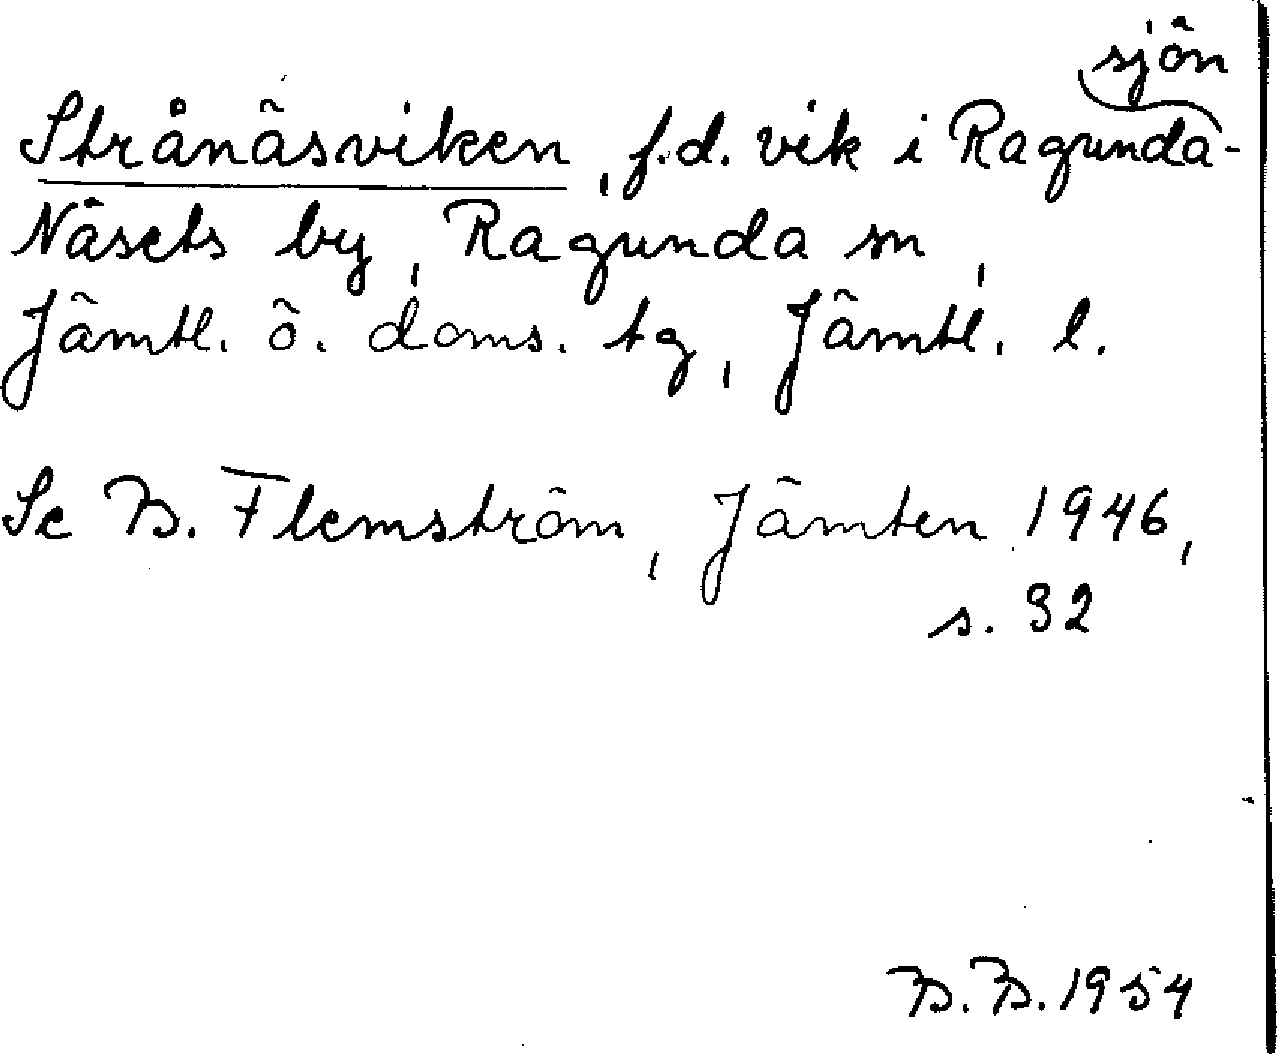 Strånäsviken, f.d. vik i Ragunda-
sjön
Näsets by, Ragunda sn,
Jämtl. ö. doms. tg, Jämtl. l.
Se B. Flemström, Jämten 1946,
s. 32
B.B. 1954